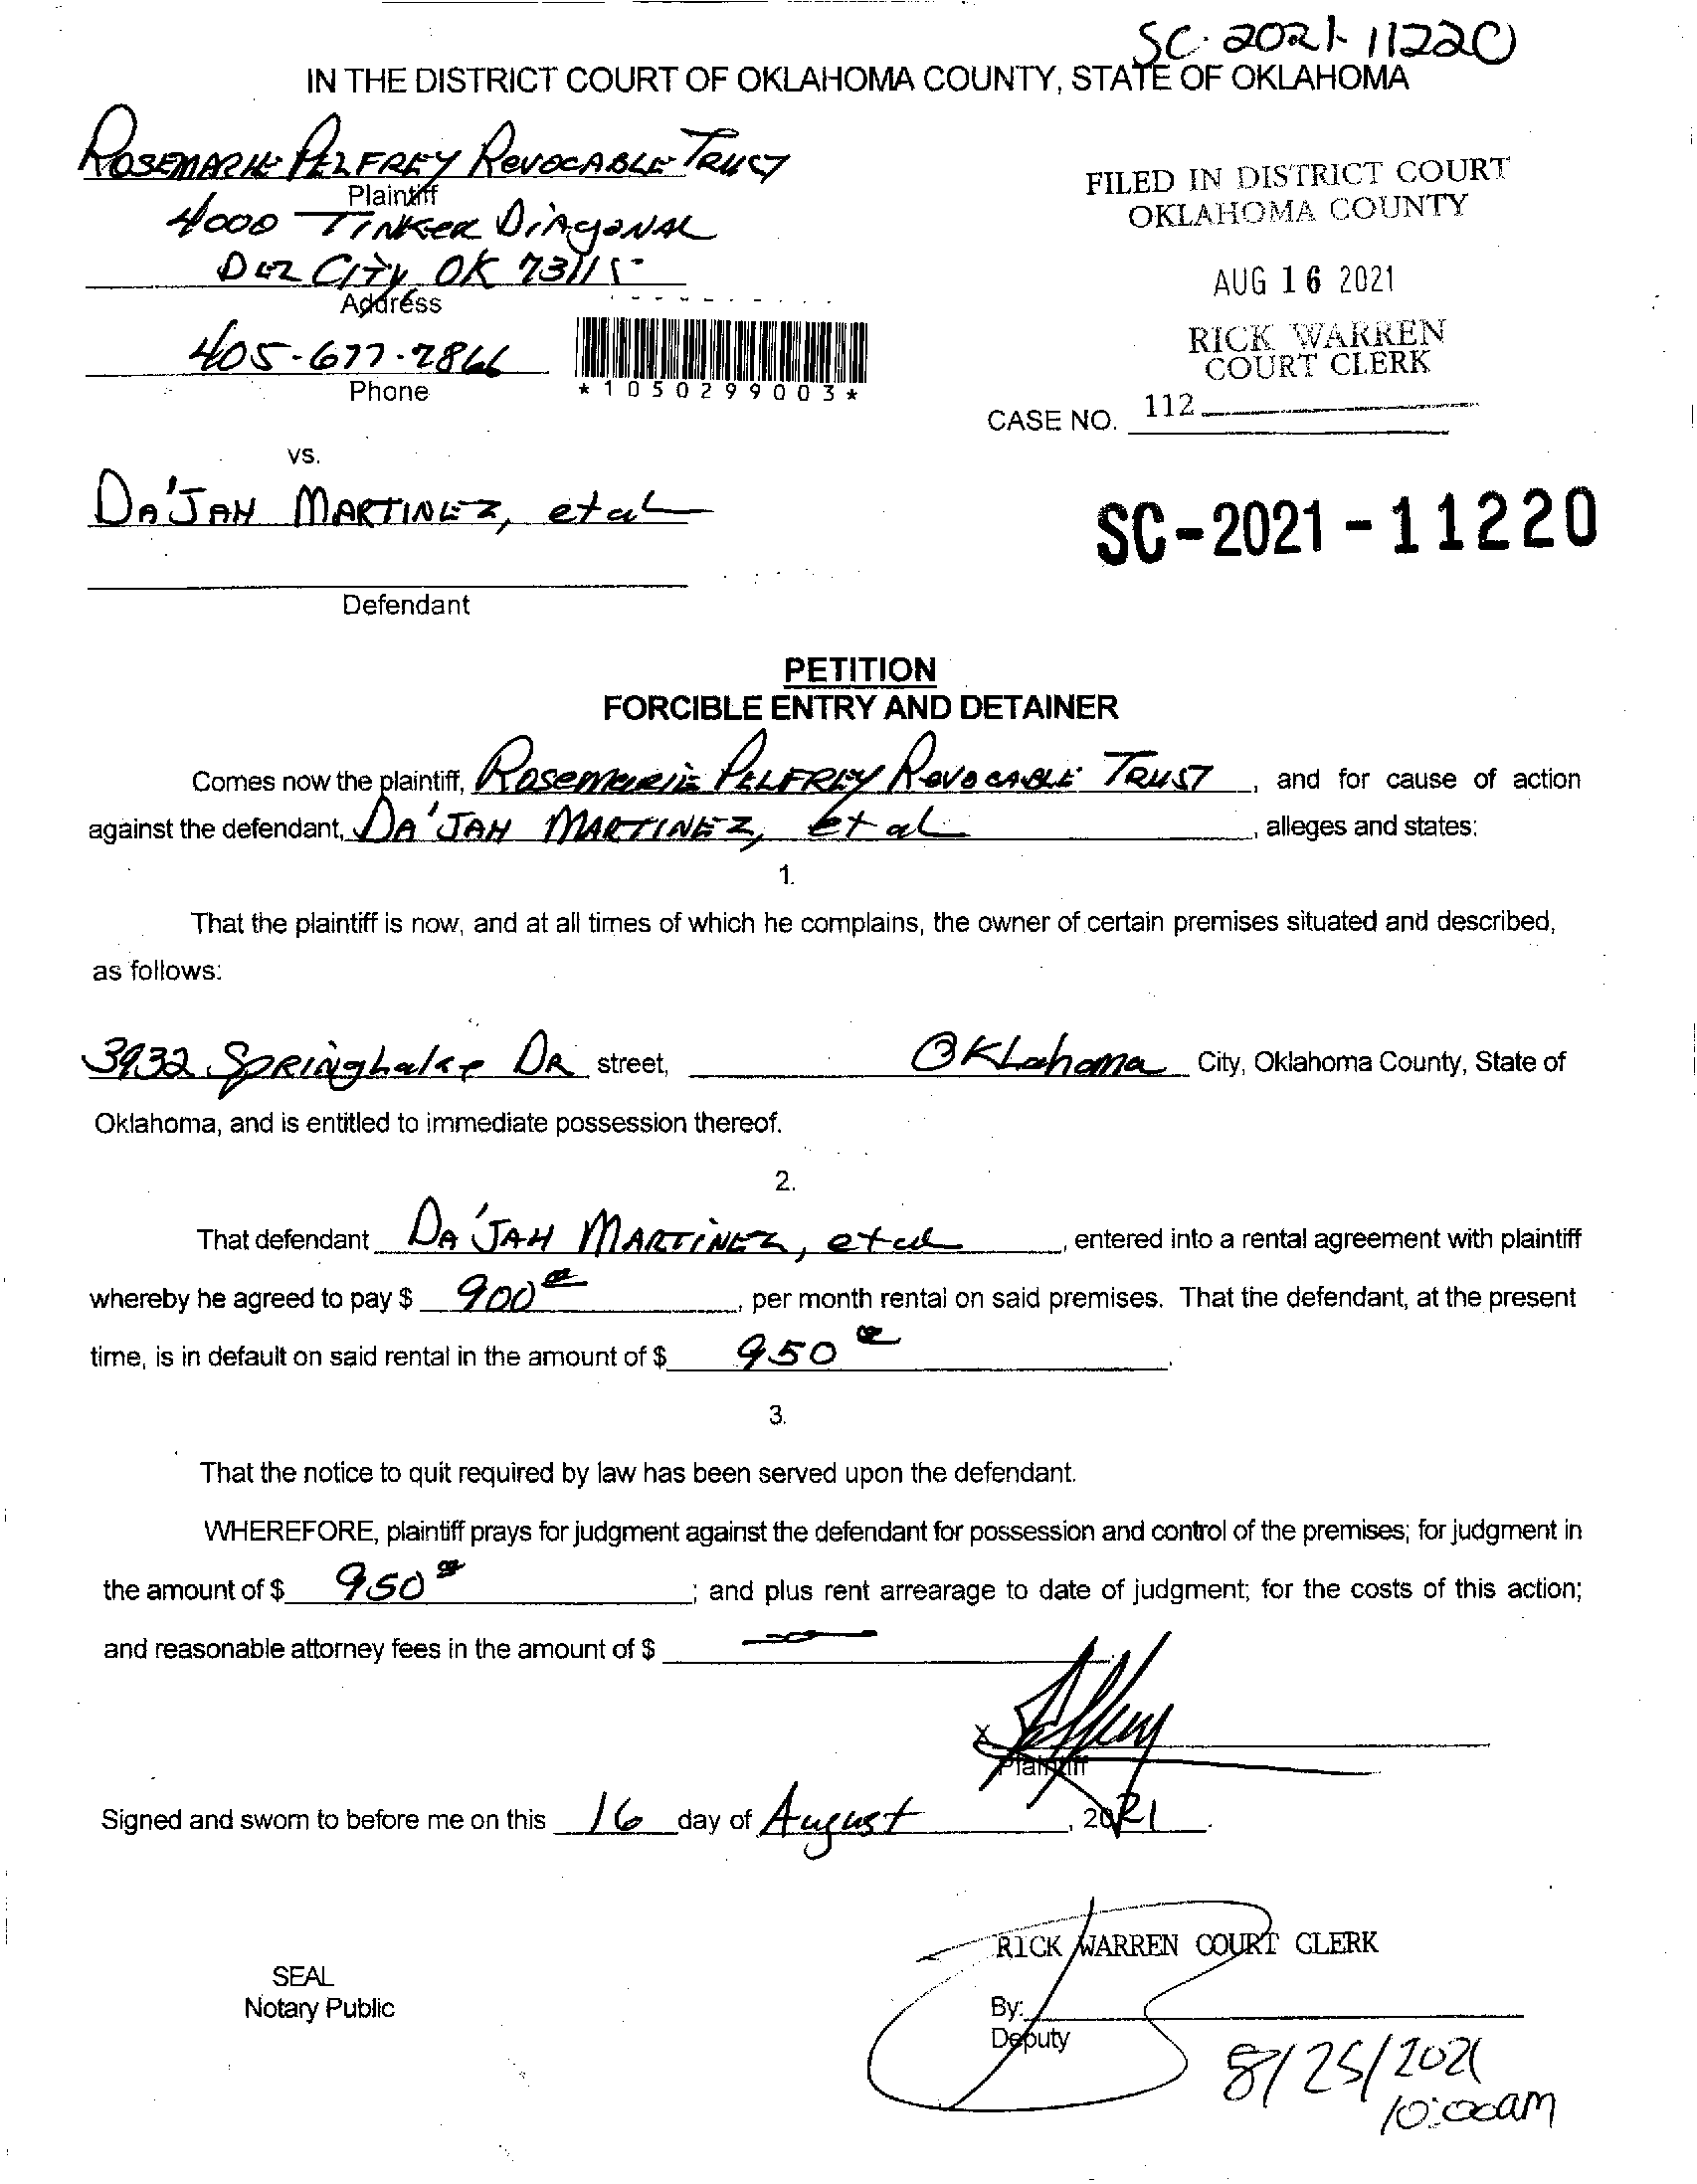 SC-2021-11220
IN THE DISTRICT COURT OF OKLAHOMA COUNTY, STATE OF OKLAHOMA
ROSEMARIE PELFREY REVOCABLE TRUST
Plaintiff
4000 TINKER DIAGONAL
DEL CITY OK 73115
Address
405-677-7866
Phone
*1050299003*
FILED IN DISTRICT COURT
OKLAHOMA COUNTY
AUG 16 2021
RICK WARREN
COURT CLERK
CASE NO. 112
vs.
DA'JAH MARTINEZ, et al
SC-2021-11220
Defendant
PETITION
FORCIBLE ENTRY AND DETAINER
Comes now the plaintiff, ROSEMARIE PELFREY REVOCABLE TRUST, and for cause of action
against the defendant, DA'JAH MARTINEZ, et al, alleges and states:
1.
That the plaintiff is now, and at all times of which he complains, the owner of certain premises situated and described,
as follows:
3932 Springlake DR street, Oklahoma City, Oklahoma County, State of
Oklahoma, and is entitled to immediate possession thereof.
2.
That defendant DA'JAH MARTINEZ, et al, entered into a rental agreement with plaintiff
whereby he agreed to pay $ 900, per month rental on said premises. That the defendant, at the present
time, is in default on said rental in the amount of $ 950.
3.
That the notice to quit required by law has been served upon the defendant.
WHEREFORE, plaintiff prays for judgment against the defendant for possession and control of the premises; for judgment in
the amount of $ 950; and plus rent arrearage to date of judgment; for the costs of this action;
and reasonable attorney fees in the amount of $
X
Plaintiff
Signed and sworn to before me on this 16 day of August, 2021.
RICK WARREN COURT CLERK
SEAL
Notary Public
By:
Deputy
8/25/2021
10:00am